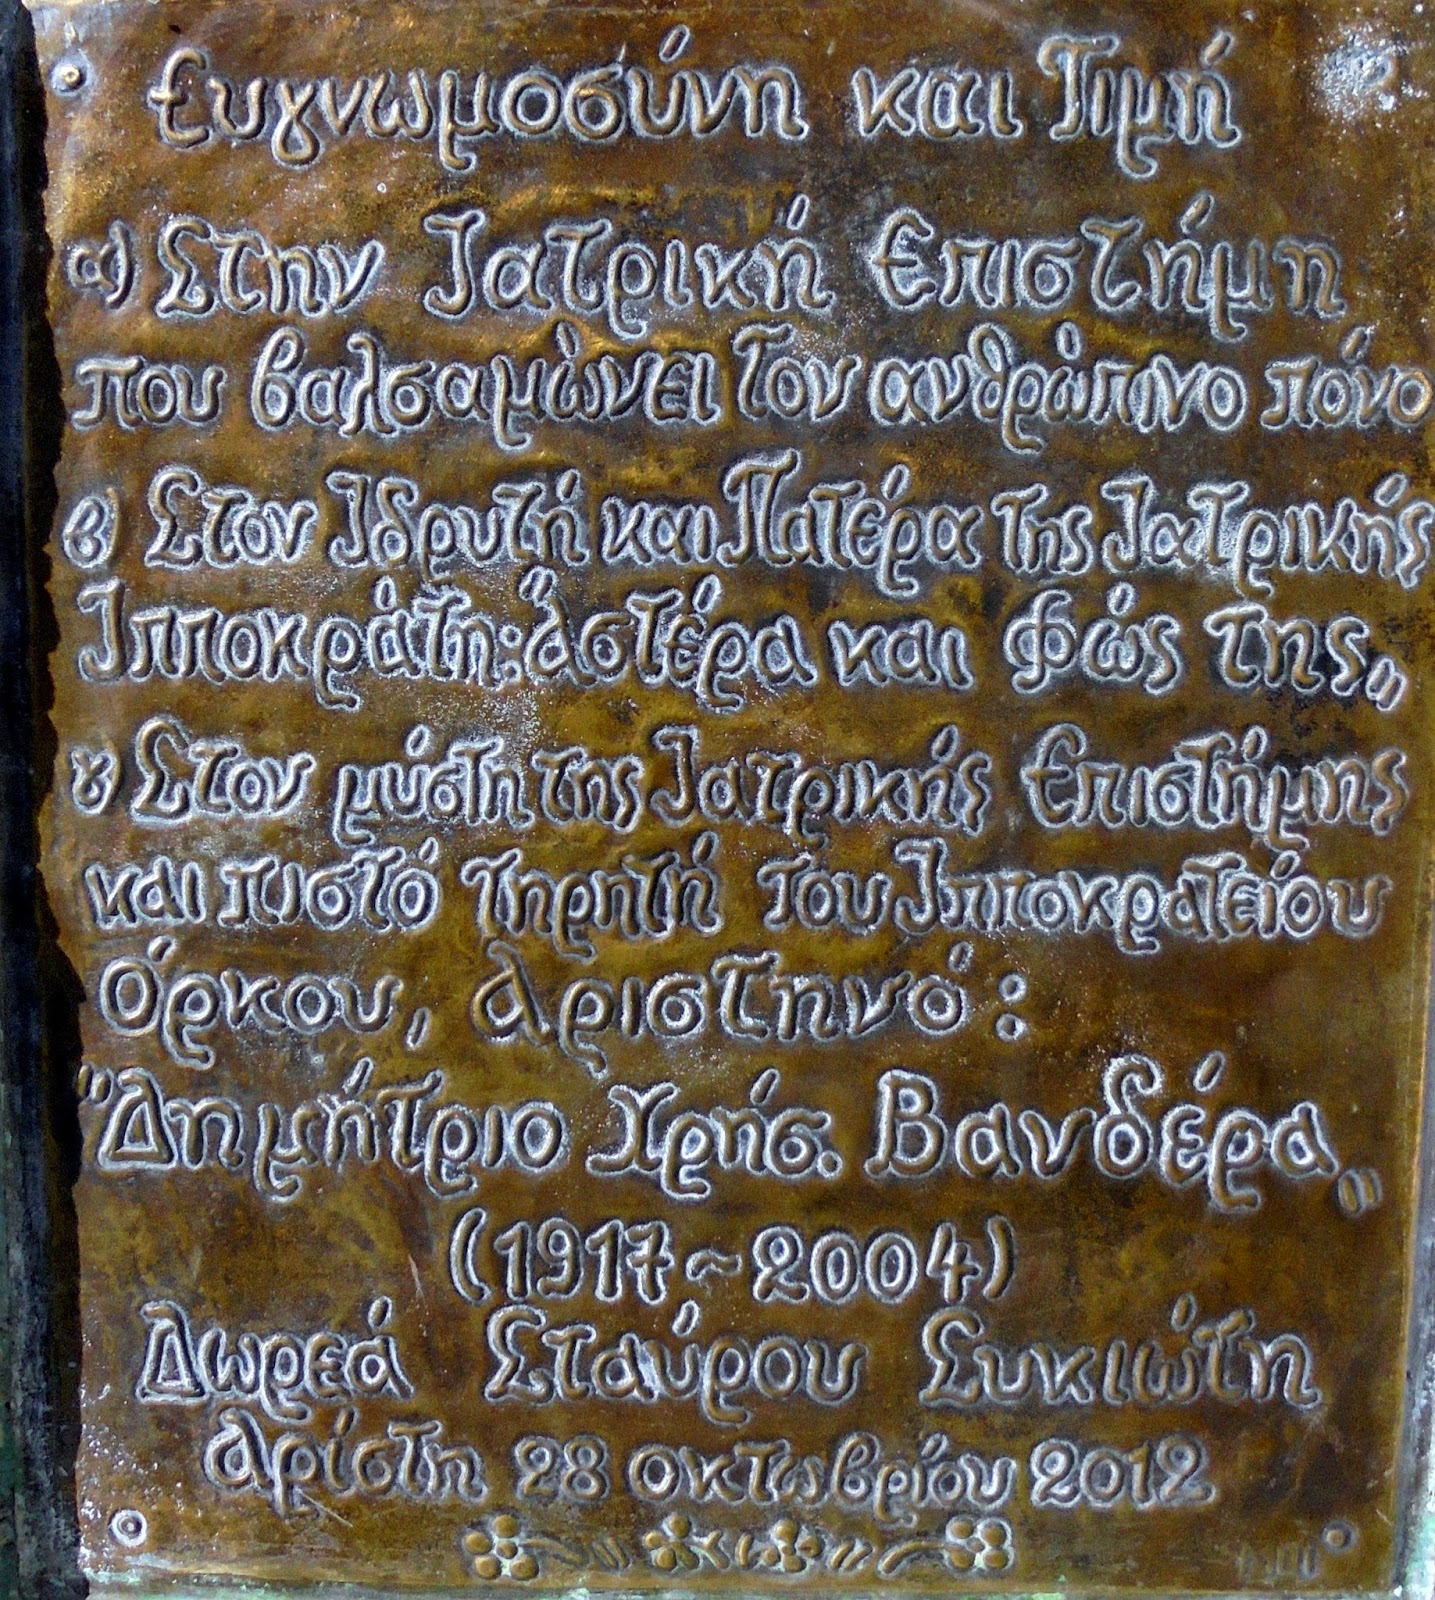 Ευγνωμοσύνη και Τιμή
α) Στην Ιατρική Επιστήμη
που βαλσαμώνει τον ανθρώπινο πόνο
β) Στον Ιδρυτή και Πατέρα της Ιατρικής
Ιπποκράτη: "Αστέρα και Φώς της„
γ) Στον μύστη της Ιατρικής Επιστήμης
και πιστό τηρητή του Ιπποκρατείου
Όρκου, Αριστηνό:
"Δημήτριο Χρήσ. Βανδέρα„
(1917~2004)
Δωρεά Σταύρου Συκιώτη
Αρίστη 28 οκτωβρίου 2012